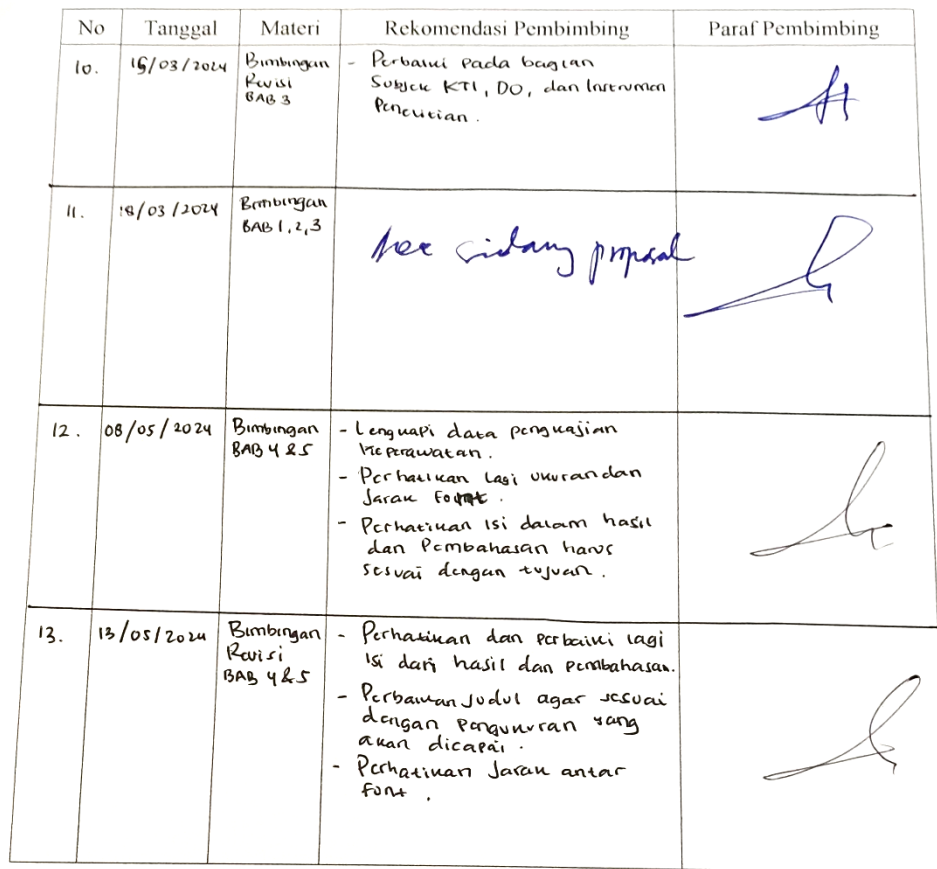 No Tanggal Materi Rekomendasi Pembimbing Paraf Pembimbing
10. 15/03/2024 Bimbingan - Perbaiki pada bagian
Revisi Subjek KTI, DO, dan Instrumen
BAB 3 Penelitian.
11. 18/03/2024 Bimbingan
BAB 1,2,3
Acc sidang proposal
12. 08/05/2024 Bimbingan - Lengkapi data pengkajian
BAB 4 & 5 keperawatan.
- Perhatikan lagi ukuran dan
Jarak Font.
- Perhatikan isi dalam hasil
dan Pembahasan harus
sesuai dengan tujuan.
13. 13/05/2024 Bimbingan - Perhatikan dan perbaiki lagi
Revisi isi dari hasil dan pembahasan.
BAB 4 & 5
- Perbaikan Judul agar sesuai
dengan pengukuran yang
akan dicapai.
- Perhatikan Jarak antar
Font.